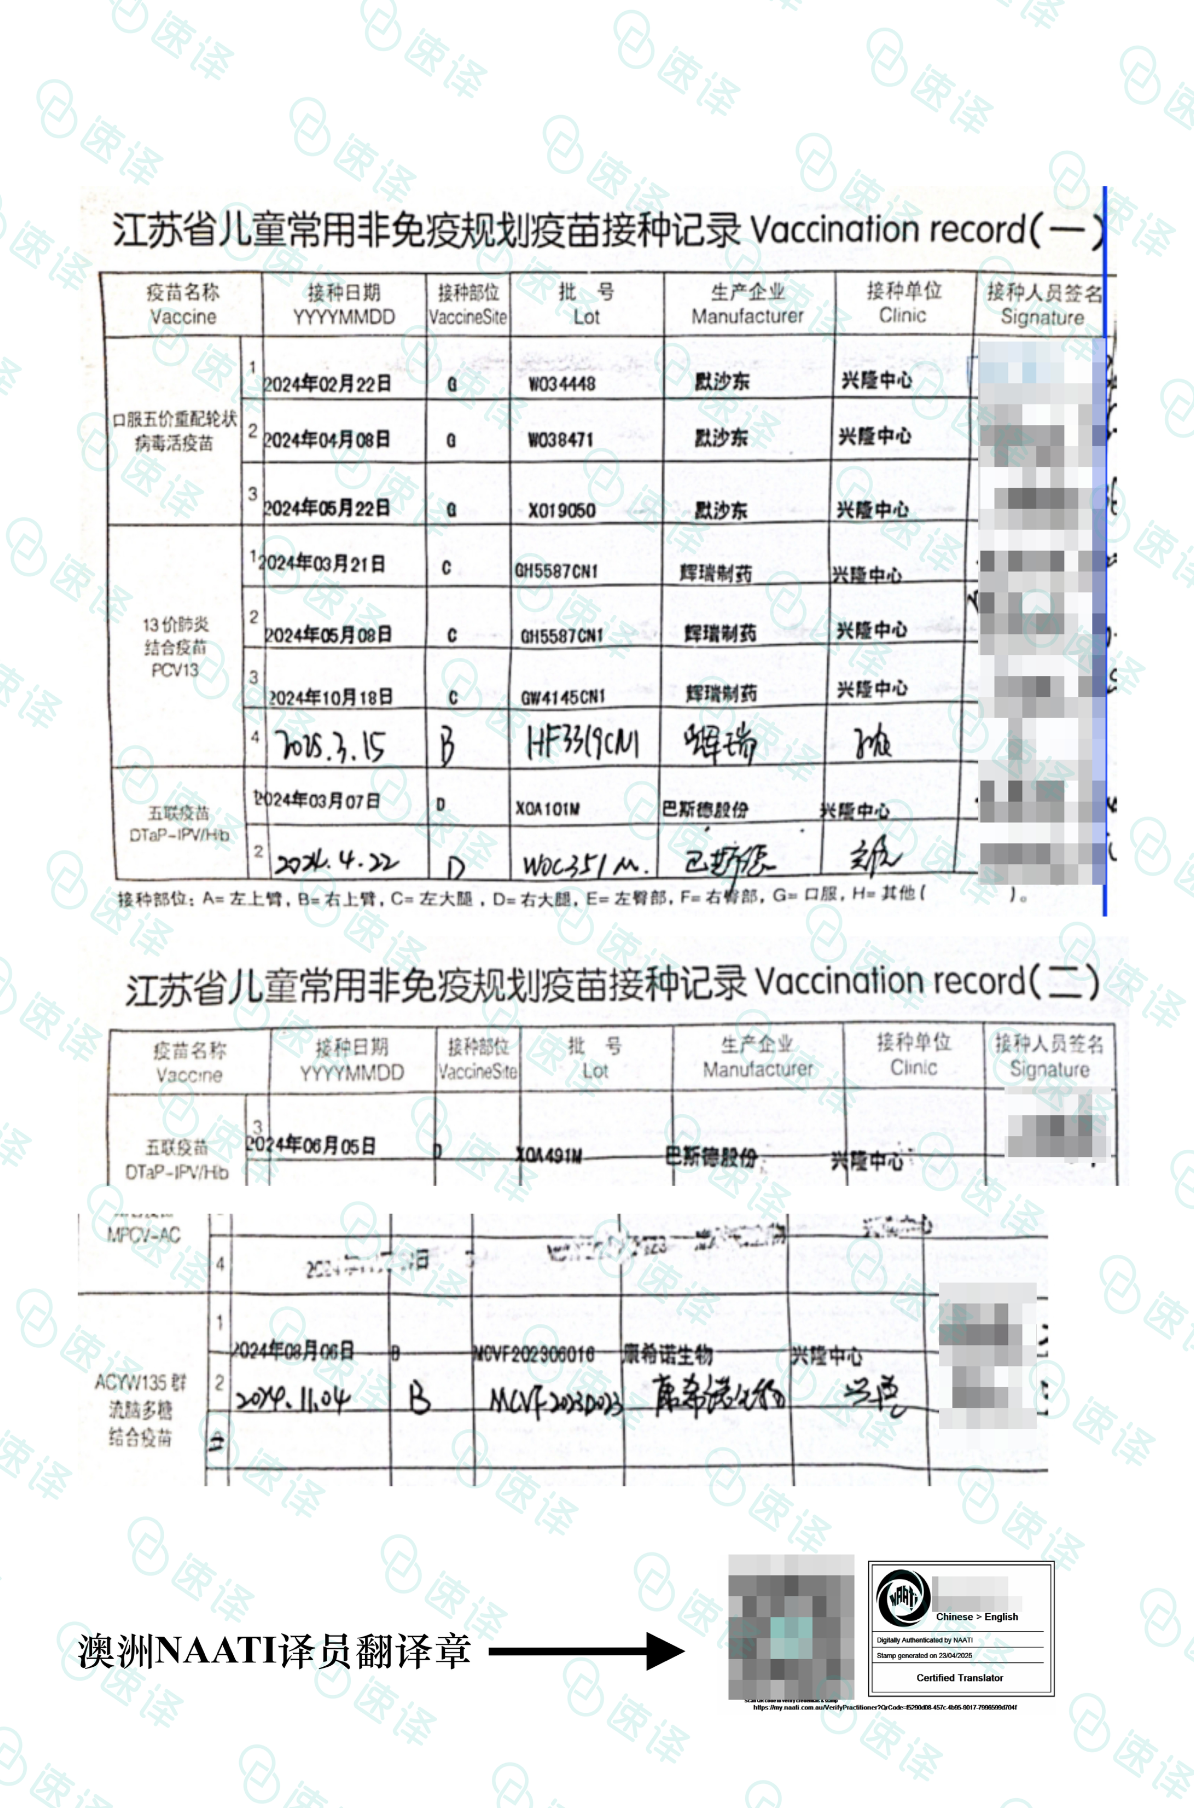 江苏省儿童常用非免疫规划疫苗接种记录 Vaccination record(一)
疫苗名称 接种日期 接种部位 批 号 生产企业 接种单位 接种人员签名
Vaccine YYYYMMDD VaccineSite Lot Manufacturer Clinic Signature
口服五价重配轮状
病毒活疫苗
1 2024年02月22日 G W034448 默沙东 兴隆中心
2 2024年04月08日 G W038471 默沙东 兴隆中心
3 2024年05月22日 G X019050 默沙东 兴隆中心
13价肺炎
结合疫苗
PCV13
1 2024年03月21日 C GH5587CN1 辉瑞制药 兴隆中心
2 2024年05月08日 C GH5587CN1 辉瑞制药 兴隆中心
3 2024年10月18日 C GW4145CN1 辉瑞制药 兴隆中心
4 2025.3.15 B HF3319CN1 辉瑞
五联疫苗
DTaP-IPV/Hib
1 2024年03月07日 D X0A101M 巴斯德股份 兴隆中心
2 2024.4.22 D W0C351M. 巴斯德
接种部位：A= 左上臂，B= 右上臂，C= 左大腿，D= 右大腿，E= 左臀部，F= 右臀部，G= 口服，H= 其他( )。
江苏省儿童常用非免疫规划疫苗接种记录 Vaccination record(二)
疫苗名称 接种日期 接种部位 批 号 生产企业 接种单位 接种人员签名
Vaccine YYYYMMDD VaccineSite Lot Manufacturer Clinic Signature
五联疫苗
DTaP-IPV/Hib
3 2024年06月05日 D X0A491M 巴斯德股份 兴隆中心
MPCV-AC
4
ACYW135 群
流脑多糖
结合疫苗
1 2024年08月06日 B MCVF202306016 康希诺生物 兴隆中心
2 2024.11.04 B MCVF2023D023 康希诺生物
澳洲NAATI译员翻译章
NAATI
Chinese > English
Digitally Authenticated by NAATI
Stamp generated on 23/04/2025
Certified Translator
速译